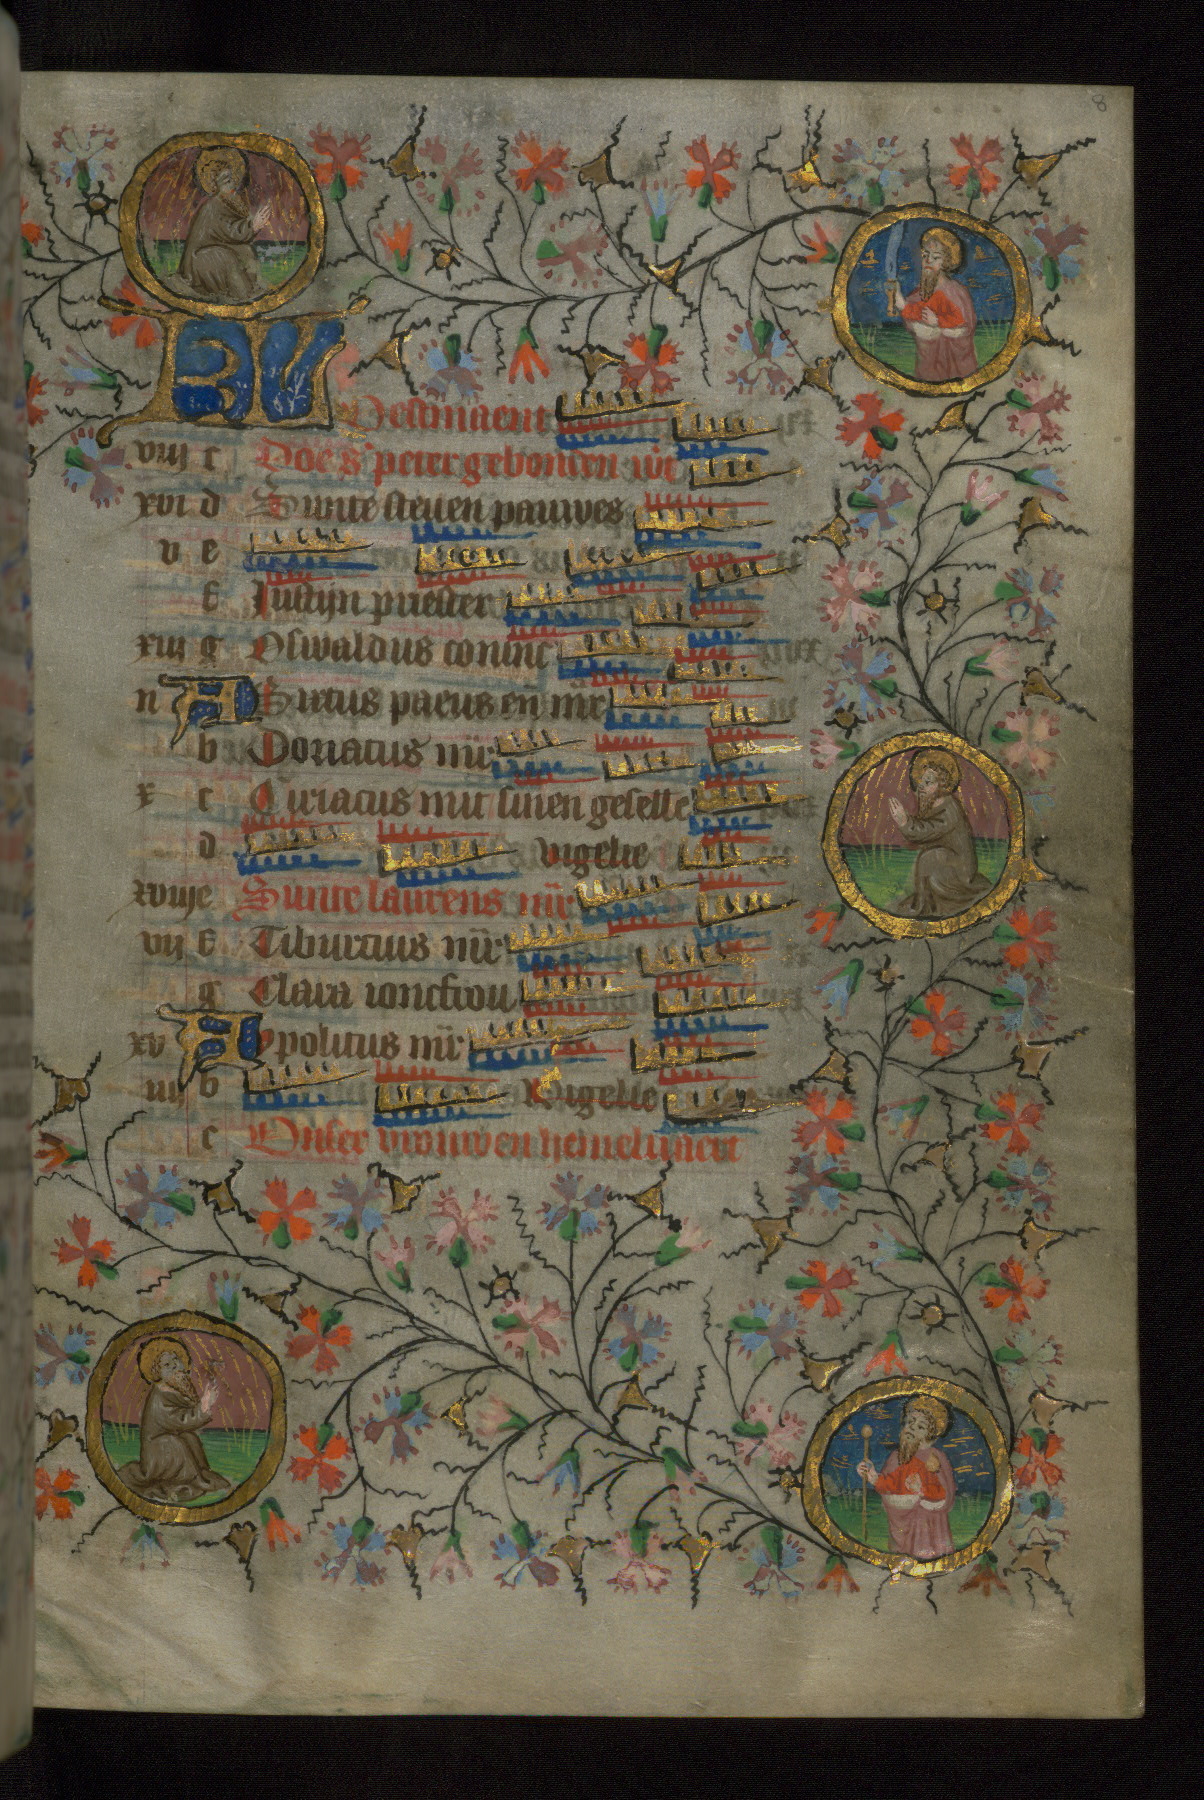 8
KL Oestmaent
viij c Doe s peter gebonden wt
xvi d Sunte steuen pauwes
v e
f Justijn priester
xiij g Oswaldus coninc
ij A Sixtus paeus en mr
b Donatus mr
x c Ciriacus mit sinen geselle
d vigelie
xviij e Sunte laurens mr
vij f Tiburcius mr
g Clara ioncfrou
xv A Ypolitus mr
iiij b Vigelie
c Onser vrouwen hemeluaert